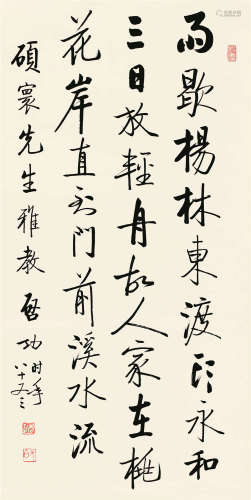 雨歇楊林東渡頭永和
三日放輕舟故人家在桃
花岸直到門前溪水流
碩寰先生雅教 啓功 時年
八十又三